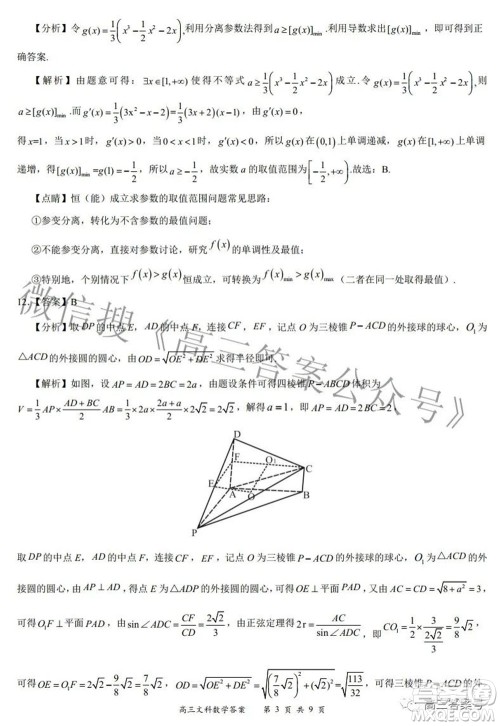 【分析】令g(x)=1/3(x³-1/2x²-2x),利用分离参数法得到a≥[g(x)]min.利用导数求出[g(x)]min,即可得到正
确答案.
【解析】由题意可得：∃x∈[1,+∞)使得不等式a≥1/3(x³-1/2x²-2x)成立.令g(x)=1/3(x³-1/2x²-2x),则
a≥[g(x)]min.而g′(x)=1/3(3x²-x-2)=1/3(3x+2)(x-1)，由g′(x)=0，
得x=1，当x>1时，g′(x)>0，当0<x<1时，g′(x)<0，所以g(x)在(0,1)上单调递减，g(x)在[1,+∞)上单调
递增，得[g(x)]min=g(1)=-1/2，所以a≥-1/2，故实数a的取值范围为[-1/2,+∞).故选：B.
【点睛】恒（能）成立求参数的取值范围问题常见思路：
①参变分离，转化为不含参数的最值问题；
②不能参变分离，直接对参数讨论，研究f(x)的单调性及最值；
③特别地，个别情况下f(x)>g(x)恒成立，可转换为f(x)min>g(x)max（二者在同一处取得最值）.
12.【答案】B
【分析】取DP的中点E，AD的中点F，连接CF，EF，记点O为三棱锥P-ACD的外接球的球心，O₁为
△ACD的外接圆的圆心，由OD=√(OE²+DE²)求得半径即可.
【解析】如图，设AP=AD=2BC=2a，由题设条件可得四棱锥P-ABCD体积为
V=1/3AP×(AD+BC)/2 AB=1/3×2a×(2a+a)/2×2√2=2√2，解得a=1，即AP=AD=2BC=2，
D
F
O₁
C
E
A
O
B
P
取DP的中点E，AD的中点F，连接CF，EF，记点O为三棱锥P-ACD的外接球的球心，O₁为△ACD的外
接圆的圆心，由AP⊥AD，得点E为△ADP的外接圆的圆心，可得OE⊥平面PAD，又由AC=CD=√(8+a²)=3，
可得O₁F⊥平面PAD，由sin∠ADC=CF/CD=2√2/3，由正弦定理得2r=AC/sin∠ADC，即CO₁=1/2×3/(2√2/3)=9/8√2，
可得OE=O₁F=2√2-9/8√2=7/8√2，可得OD=√(OE²+DE²)=√((7/8√2)²+(√2)²)=√(113/32)，可得三棱锥P-ACD的外
高三文科数学答案 第 3 页 共 9 页
微信搜《高三答案公众号》
高三答案号